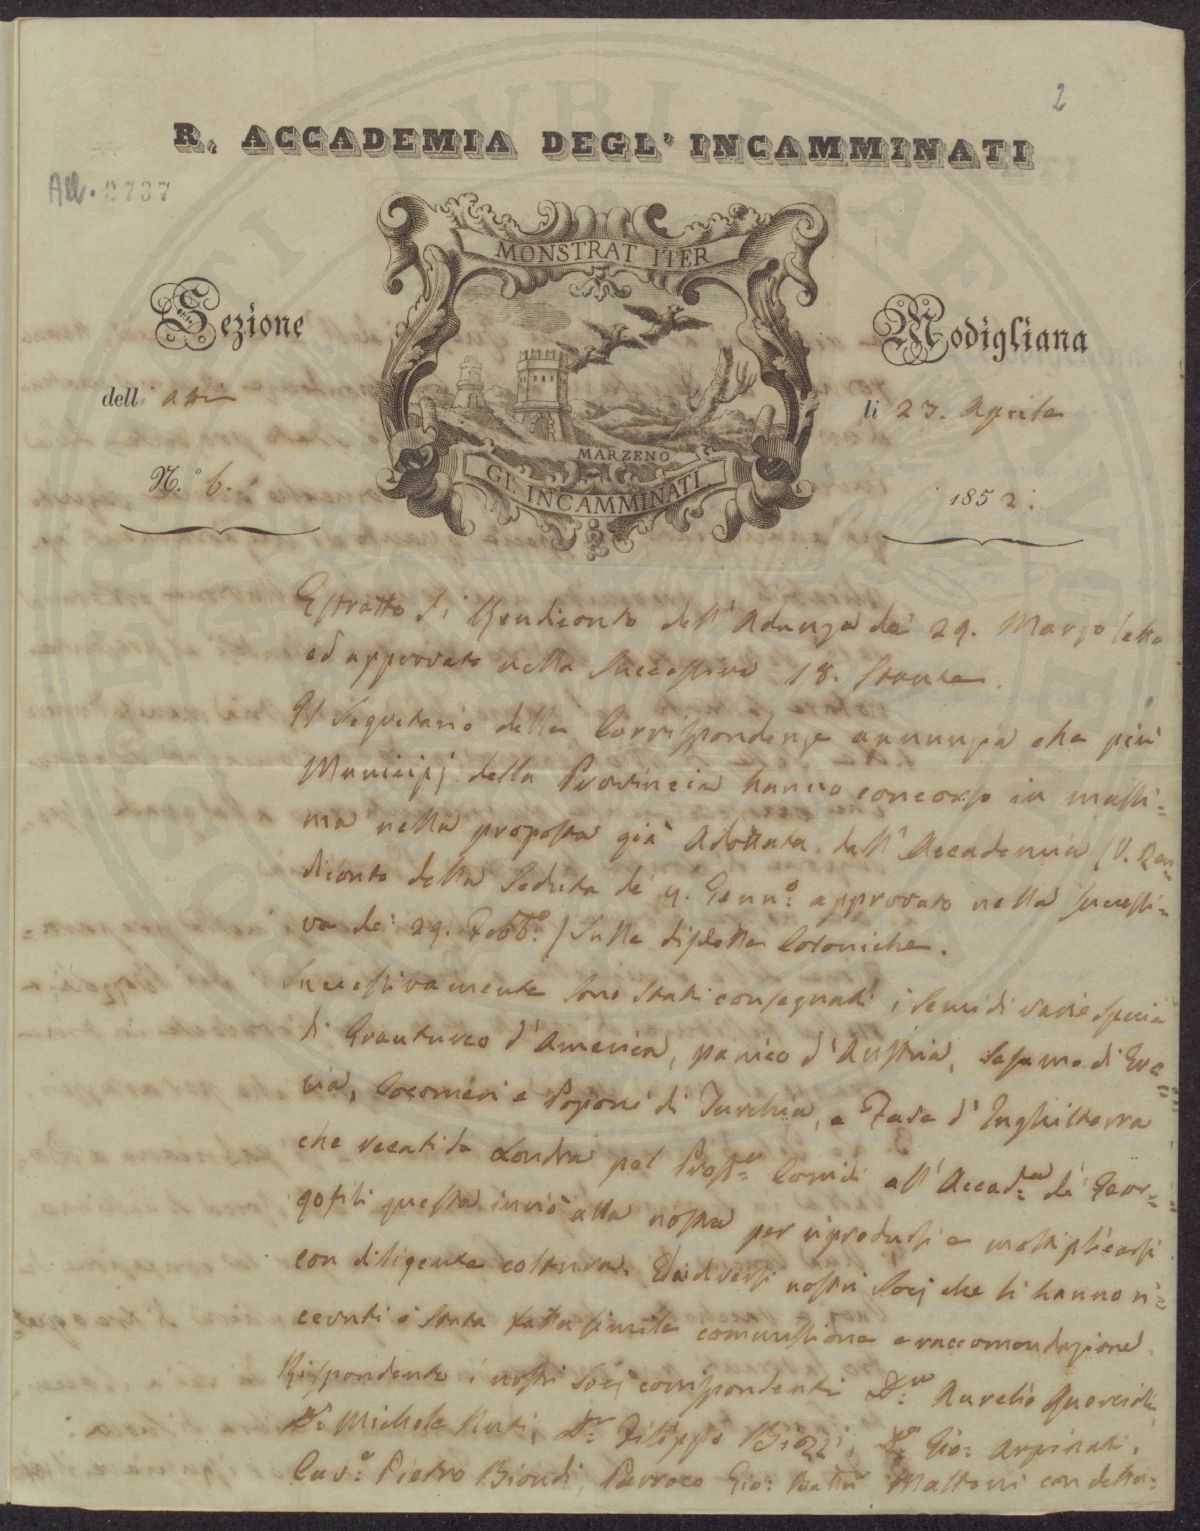 2
R. ACCADEMIA DEGL' INCAMMINATI
All. 2737
MONSTRAT ITER
Sezione
Modigliana
delli atti
li 23. Aprile
MARZENO
GL' INCAMMINATI
N.° 6.
1852.
Estratto di Rendiconto dell' Adunza de' 29. Marzo letto
ed approvato nella Successiva 18. Stante.
Il Segretario della Corrispondenza annunzia che più
Municipj della Provincia hanno concorso in massi=
ma nella proposta già Adottata dall' Accademia (V. Ren=
diconto della Seduta de' 4. Genn.° approvato nella successi=
va de' 29. Febb.°) Sulle disdette Coloniche.
Successivamente Sono Stati consegnati i Semi di varie specie
di Granturco d' America, panico d' Austria, Sesamo di Gre=
cia, Cocomeri e Poponi di Turchia, e Fave d' Inghilterra
che recati da Londra pel Prof.r Corridi all' Accad.a de' Geor=
gofili questa inviò alla nostra per riprodursi e moltiplicarsi
con diligente coltura. Ed ai diversi nostri Socj che li hanno ri=
cevuti è Stata fatta simile commissione e raccomandazione.
Rispondento i nostri Socj corrispondenti D.r Aurelio Querciol
D.r Michele Ruti, D.r Filippo D.r Gio: Arpinati,
Cav.e Pietro Biondi, Parroco Gio: Batta Mattoni con detta=